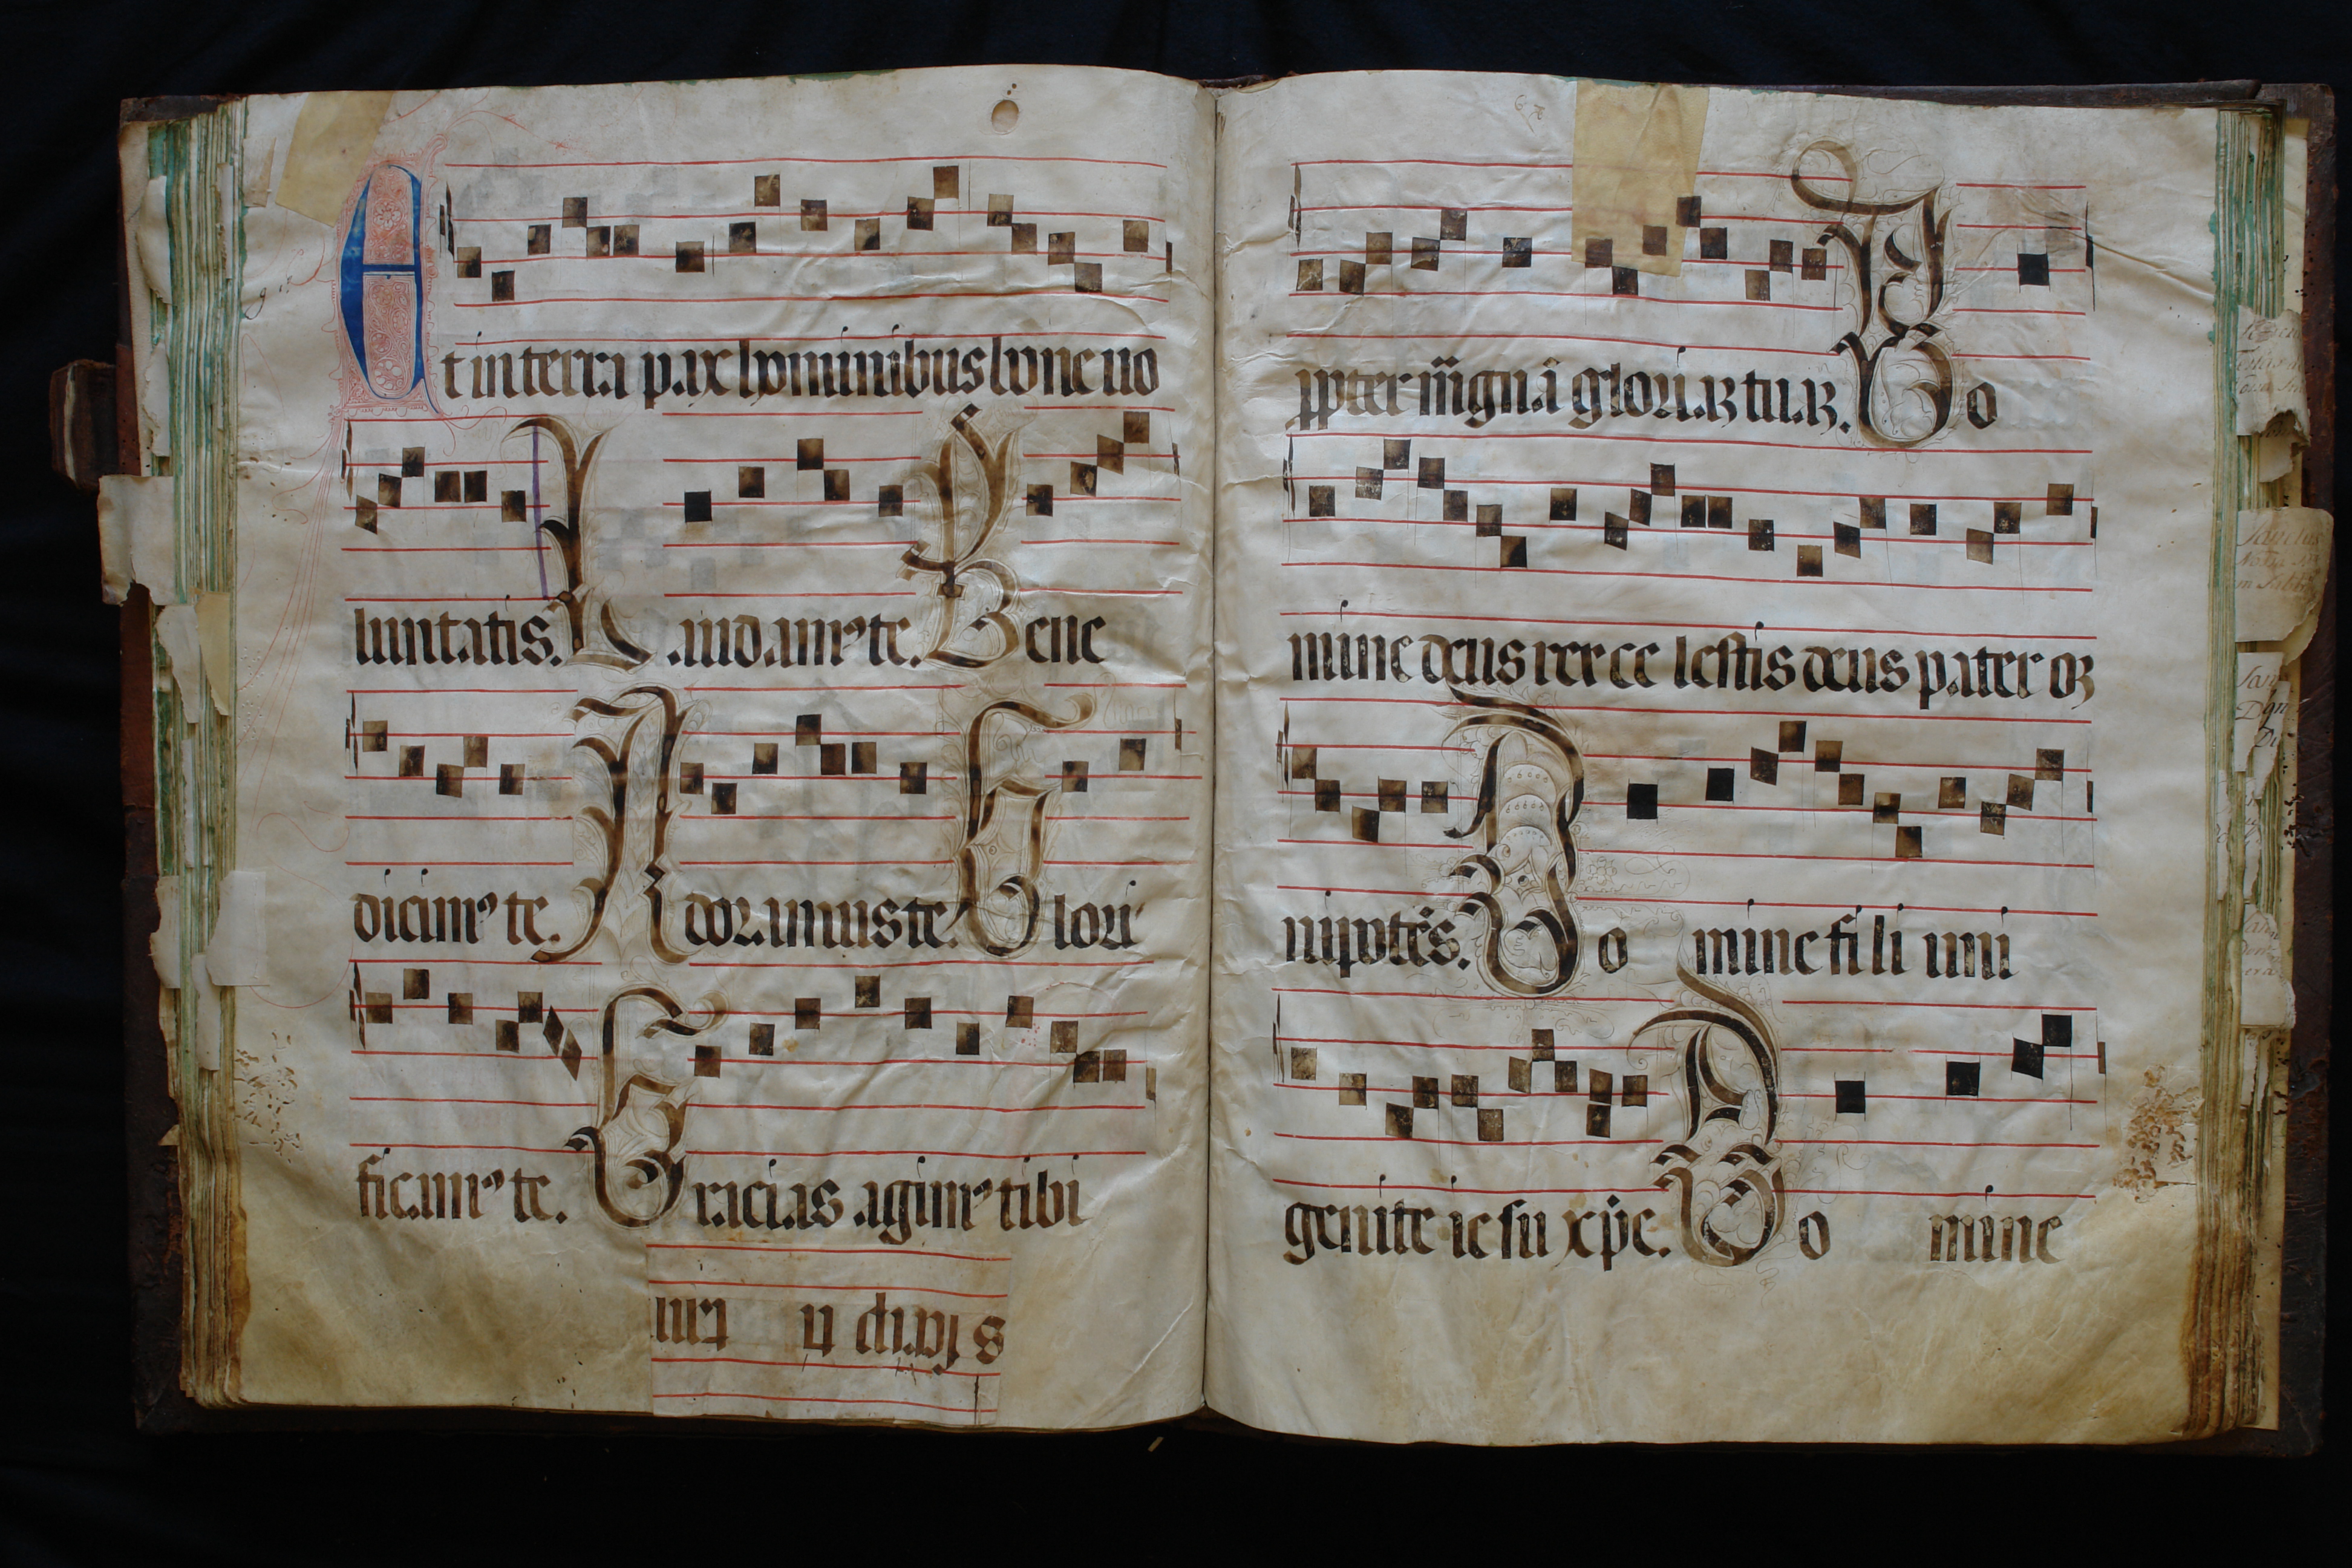 Et in terra pax hominibus bone uo
luntatis. Laudamꝰ te. Bene
dicimꝰ te. Adoramus te. Glori
ficamꝰ te. Gracias agimꝰ tibi
ꝓpter mãgnã gloriaꝫ tuaꝫ. Do
mine deus rex ce lestis deus pater oꝫ
nipotẽs. Do mine fili uni
genite iesu xp̃e. Do mine